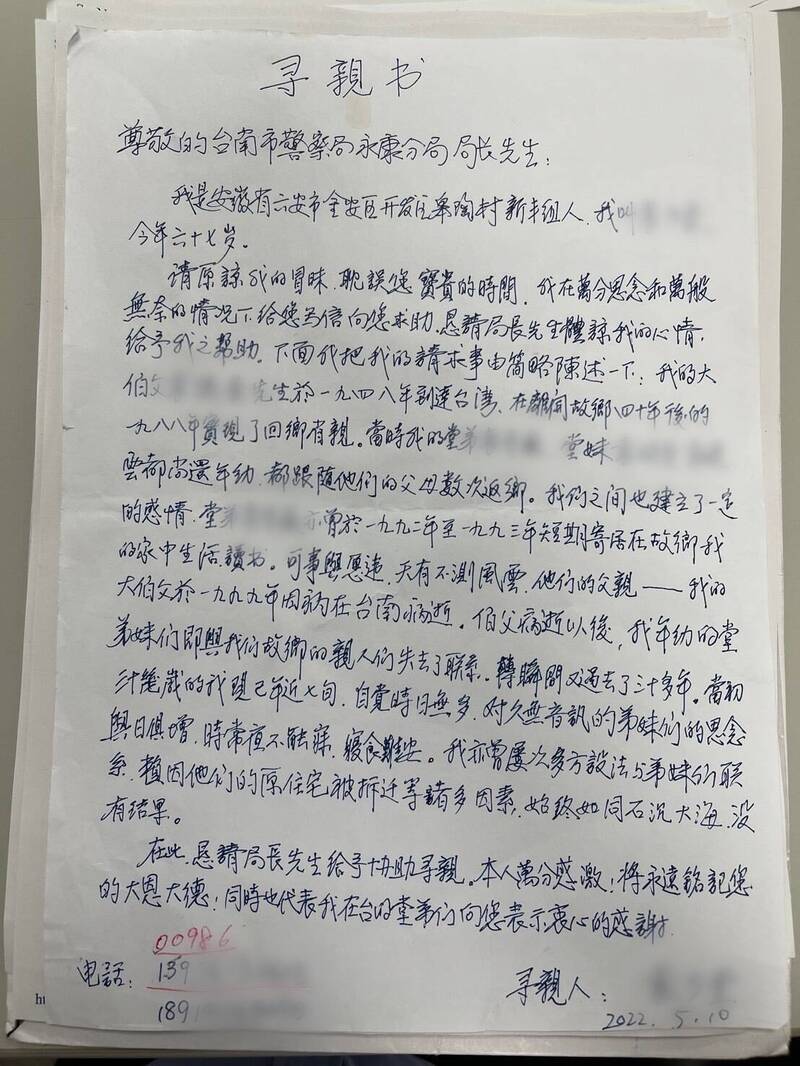 寻親书
尊敬的台南市警察局永康分局局长先生：
我是安徽省六安市金安区开发区皋陶村新丰组人，我叫
今年六十七岁。
请原諒我的冒昧，耽誤您寶貴的時間，我在萬分思念和萬般
無奈的情况下给您写信向您求助，恳請局長先生體諒我的心情，
给予我之幫助。下面我把我的請求事由简略陳述一下：我的大
伯父先生於一九四八年到達台湾，在離開故鄉四十年後的
一九八八年實現了回鄉省親。當時我的堂弟 堂妹
雲都尚還年幼，都跟隨他们的父母數次返鄉。我们之間也建立了一定
的感情，堂弟 亦曾於一九九二年至一九九三年短期寄居在故鄉我
的家中生活、讀书。可事與愿违，天有不測風雲，他们的父親——我的
大伯父於一九九九年因病在台南病逝。伯父病逝以後，我年幼的堂
弟妹们即與我们故鄉的親人们失去了联系。轉瞬間又過去了二十多年。當初
卅幾歲的我現已年近七旬，自覺時日無多，对久無音訊的弟妹们的思念
與日俱增，時常夜不能寐，寢食難安。我亦曾屡次多方設法与弟妹们联
系，賴因他们的原住宅被拆迁等諸多因素，始终如同石沉大海，没
有结果。
在此，恳請局長先生给予协助寻親。本人萬分感激！将永遠銘記您
的大恩大德！同時也代表我在台的堂弟们向您表示衷心的感謝！
00986
电話：139
189
寻親人：
2022.5.10
ht